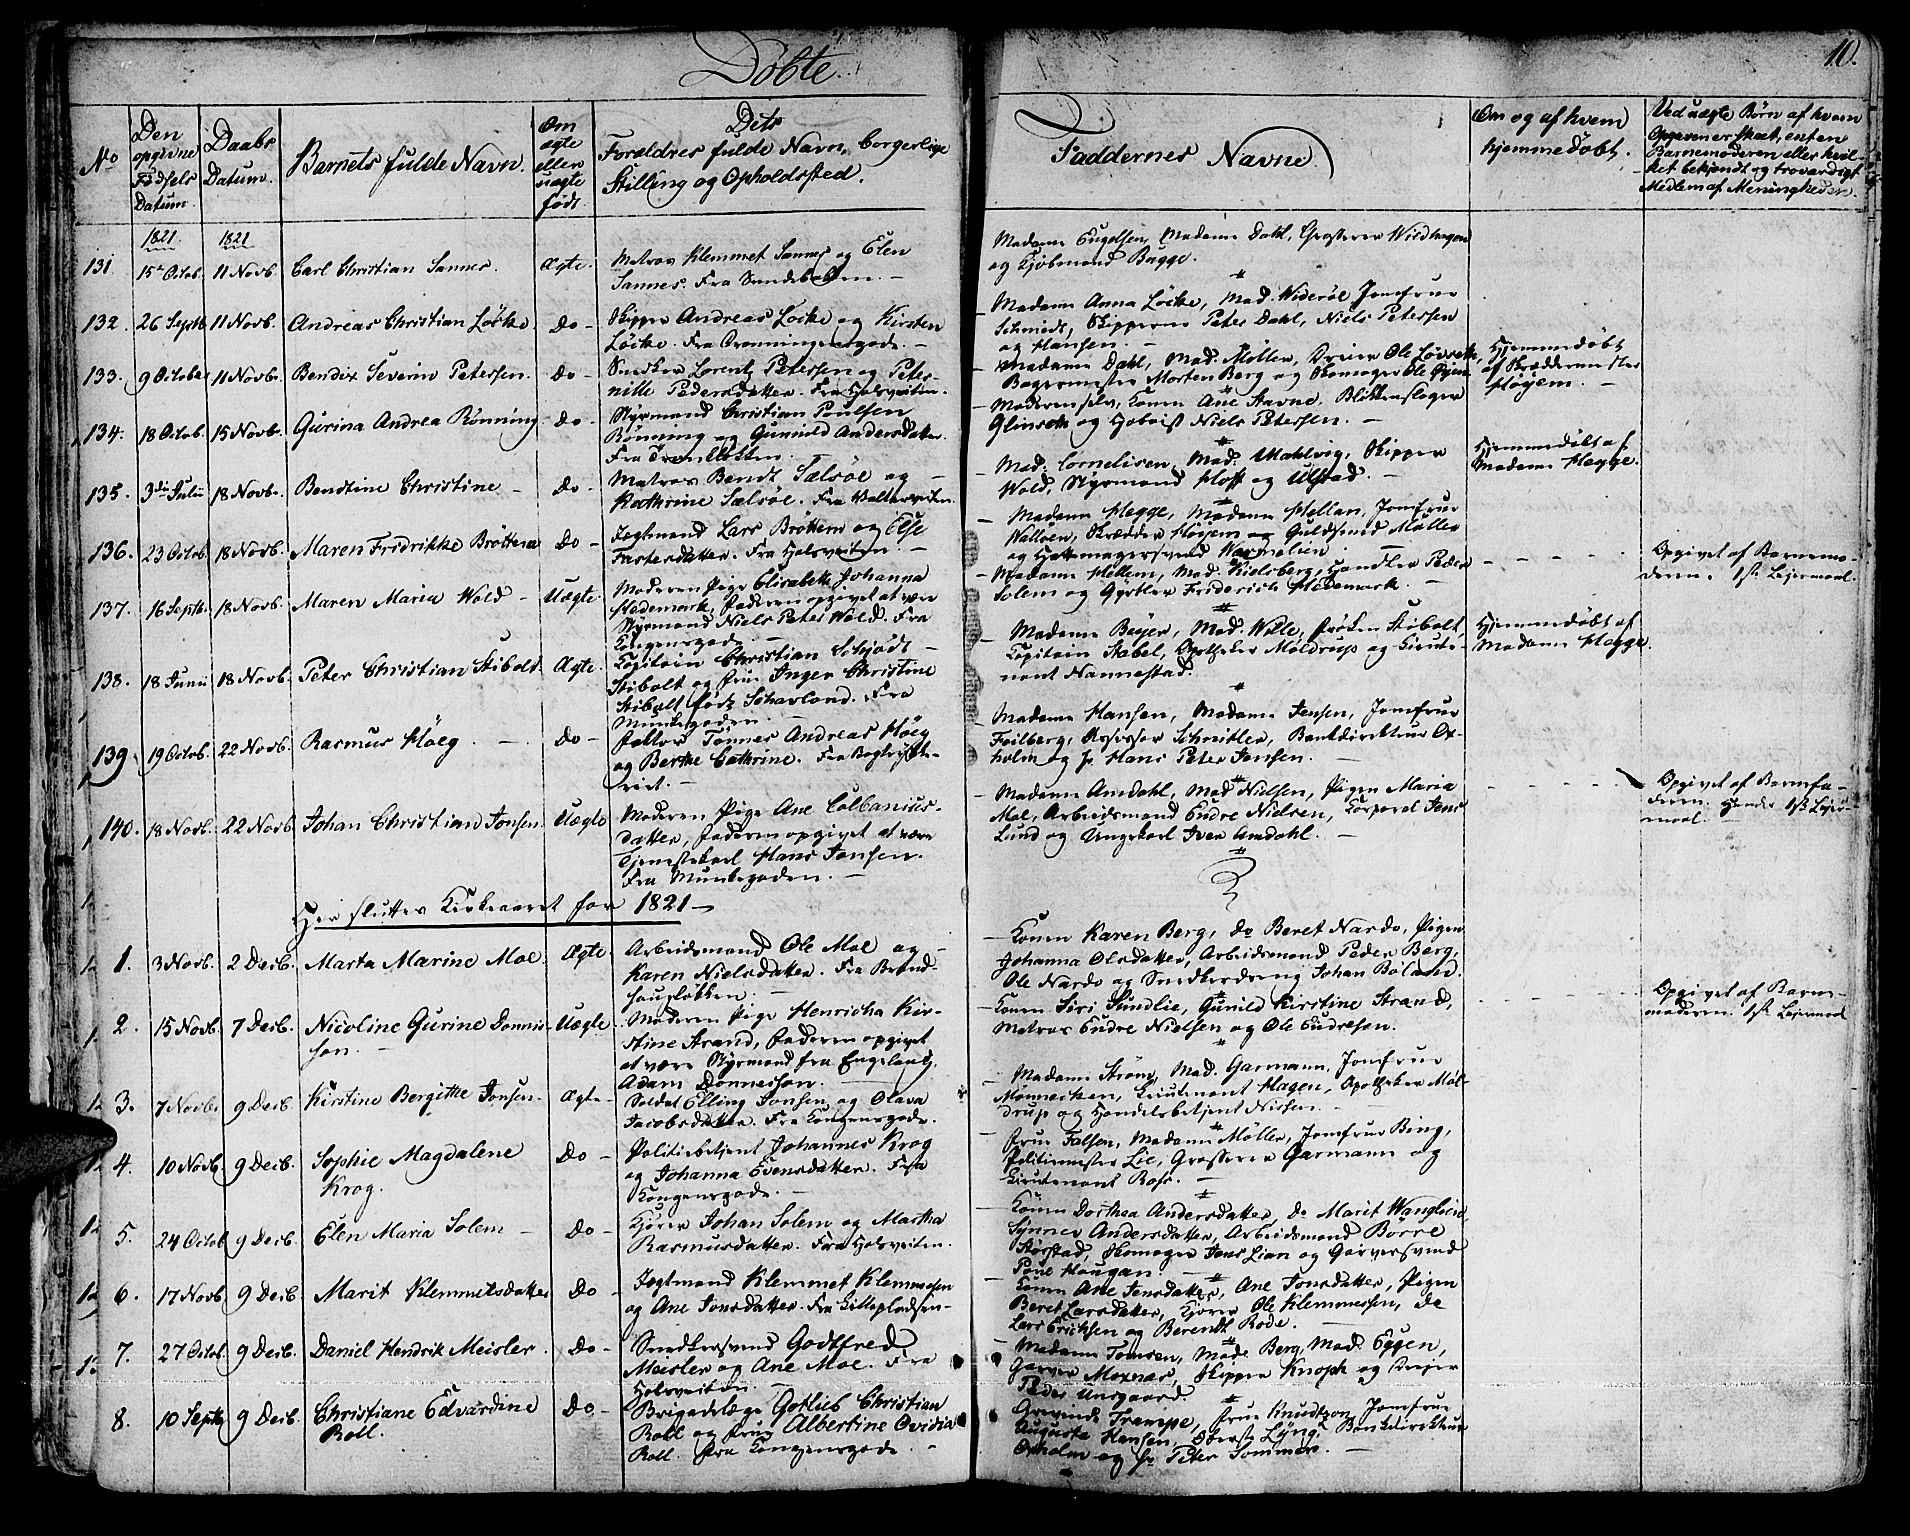 Döbte
10.
No
Den opgivne Fødsels Datum.
Daabs Datum.
Barnets fulde Navn.
Om ægte eller uægte født
Dets Forældres fulde Navn, borgerlige Stilling og Opholdssted.
Faddernes Navne.
Om og af hvem hjemmedøbt.
Ved uægte Børn af hvem Opgiven er skeet, enten Barnemoderen eller hvilket bekjendt og troværdigt Medlem af Menigheden.
1821 1821
131. 15de Octob. 11 Novb. Carl Christian Sannes. Ægte.
Matros Klemmet Sannes og Elen
Sannes. Fra
Madame Engelsen, Madame Dahl, Grosserer Wildhagen
og Kjøbmand Bugge.
132. 26 Septb. 11 Novb. Andreas Christian Löcke. Do -
Skipper Andreas Locke og Kirsten
Löcke. Fra Dronningensgade. -
Madame Anna Löcke, Mad. Wideröe Jomfrue
Schmidt, Skipperne Peter Dahl, Niels Petersen
og Hansen. -
133. 9 October 11 Novb. Bendix Severin Petersen. Do -
Snedker Lorentz Petersen og Peter-
nille Pedersdatter. Fra Holsveiten.
Madame Dahl, Mad. Möller, Dreier Ole
Bagermester Morten Berg og Skomager Ole
Hjemmedøbt
af Skrædderen
Höyem. -
134. 18 Octob. 15 Novb. Gurina Andrea Rönning Do -
Styrmand Christian Poulsen
Rönning og Gunnild Andersdatter
Fra
Moderen selv, Konen Ane Stavne. Blikkenslager
og Hoboist Niels Petersen. -
135. 3die Julii 18 Novb. Benstine Christine - Do -
Matros Bendt Sælsöe og -
Kathrine Sælsöe. Fra
Mad. Cornelisen, Mad. Mahlvig, Skipper
Wold, Styrmand Hoff og Ulstad. -
Hjemmedøbt af
Madame Hegge.
136. 23 Octob. 18 Novb. Maren Fredrikke Bröttem Do -
Jegtmand Lars Bröttem og Else
Fra Holsveiten. -
Madame Hegge, Madame Hellan, Jomfrue
Skrædder Höyem og Guldsmed Möller
og Hattemagersvend
137. 16 Septb. 18 Novb. Maren Maria Wold - Uægte
Moderen Pige Elisabeth Johanna
Hedemark, Faderen opgivet at være
Styrmand Niels Peter Wold. Fra
Kongensgade. -
Madame Hellem, Mad. Kielsberg, Handler Peder
Solem og Gjørtler Friderich Hedemark
Opgivet af Barnemo-
deren. 1ste Leiermaal.
138. 18 Junii 18 Novb. Peter Christian Stibolt. Ægte.
Capitain Christian Schjödt -
Stibolt og Frue Inger Christine
Stibolt født Schavland. Fra
Munkegaden. -
Madame Beyer, Mad. Wille, Frøken Stibolt,
Capitain Stabel, Apotheker Moldrup og Lieute-
nant Nannestad.
Hjemmedøbt af
Madame Hegge.
139. 19 Octob. 22 Novb. Rasmus Höeg. - Do -
Faktor Tönnes Andreas Höeg
og Berthe Cathrine. Fra Bogtrÿkke-
riet. -
Madame Hansen, Madame Jensen, Jomfrue
Feilberg, Assessor Schnitler, Bankdirekteur Ox-
holm og Hr Hans Peter Jensen. -
140. 18 Novb. 22 Novb. Johan Christian Jonsen. Uægte
Moderen Pige Ane Colbanius-
datter, Faderen opgivet at være
Tjenestekarl Hans Jonsen.
Fra Munkegaden. -
Madame Amdahl, Mad. Nielsen, Pigen Maria
Moe, Arbeidsmand Endre Nielsen, Corporal Jens
Lund og Ungekarl Iver Amdahl. -
Opgivet af Barnefa-
deren. Hendes 1ste Leier-
maal. -
Her sluttes Kirkeaaret for 1821 -
1. 3 Novb. 2 Decb. Marta Marine Moe. Ægte.
Arbeidsmand Ole Moe og -
Karen Nielsdatter. Fra Brand-
hougløkken. -
Konen Karen Berg, do Beret Nardo, Pigen
Johanna Olsdatter, Arbeidsmand Peder Berg,
Ole Nardo og Snedkerdreng Johan
2. 15 Novb. 7 Decb. Nicoline Gurine Donnes- Uægte
son. -
Moderen Pige Henricha Kir-
stine Strand, Faderen opgivet
at være Styrmand fra Engeland,
Adam Donnesson.
Konen Siri Sundlie, Gunild Kirstine Strand,
Matros Endre Nielsen og Ole Endresen.
Opgivet af Barne-
moderen. 1ste Leiermaal
3. 7 Novbr. 9 Decb. Kirstine Bergithe Jonsen. Ægte -
Soldat Elling Jonsen, og Olava
Jacobsdatter. Fra Kongensgade.
Madame Ström, Mad. Garmann, Jomfrue
Lieutenant Hagen, Apotheker Mol-
drup og Handelsbetjent Nissen. -
4. 10 Novb. 9 Decb. Sophie Magdalene Do -
Krog.
Politiebetjent Johannes Krog
og Johanna Evensdatter. Fra
Kongensgade. -
Frue Falsen, Madame Möller, Jomfrue Bing,
Politiemester Lie, Grosserer Garmann og
Lieutenant Roß. -
5. 24 Octob 9 Decb. Elen Maria Solem - Do -
Kjører Johan Solem og Martha
Rasmusdatter. Fra Holsveiten.
Konen Dorthea Andersdatter, do Marit
Synnev Andersdatter, Arbeidsmand Börre
Skomager Jens Lian og Garversvend
Haugan. -
6. 17 Novb. 9 Decb. Marit Klemmetsdatter Do -
Jegtmand Klemmet Klemmesen
og Ane Jonsdatter. Fra Illeplads.
Konen Ane Jensdatter, Ane Jonsdatter, Pigen
Beret Larsdatter, Kjører Ole Klemmessen, do
Lars Erichsen og Berendt Rode.
7. 27 Octob. 9 Decb. Daniel Hendrik Meisler. Do -
Snedkersvend Godtfred
Meisler og Ane Moe. Fra
Holsveiten. -
Madame Tomsen, Made Berg, Mad. Eggen,
Garver Moxnæs, Skipper Knoph og Dreier
Peder Unsgaard.
8. 10 Septb 9 Decb. Christiane Edvardine Do -
Roll.
Brigadelæge Gotlieb Christian
Roll og Frue Albertine Ovidia
Roll. Fra Kongensgade. -
Grevinde Trampe, Frue Knudtzon, Jomfrue
Augusta Hansen, Oberst Lÿng, Bankdirekteur
Oxholm og Hr Peter Sommer. -